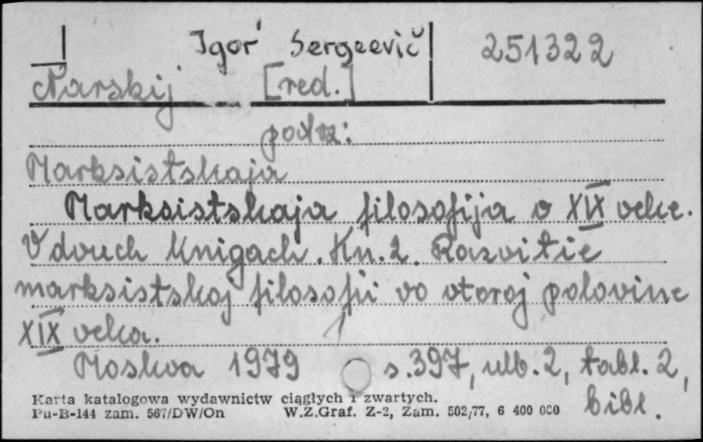 Igor' Sergeevič 251322
Narskij [red.]
podrz:
Marksistskaja
Marksistskaja filosofija v XIX veke.
V dvuch knigach. Kn. 2. Razvitie
marksistskoj filosofii vo vtoroj polovine
XIX veka.
Moskva 1979 s. 397, ulb. 2, tabl. 2,
bibl.
Karta katalogowa wydawnictw ciągłych i zwartych.
Pu-B-144 zam. 567/DW/On W.Z.Graf. Z-2, Zam. 502/77, 6 400 000